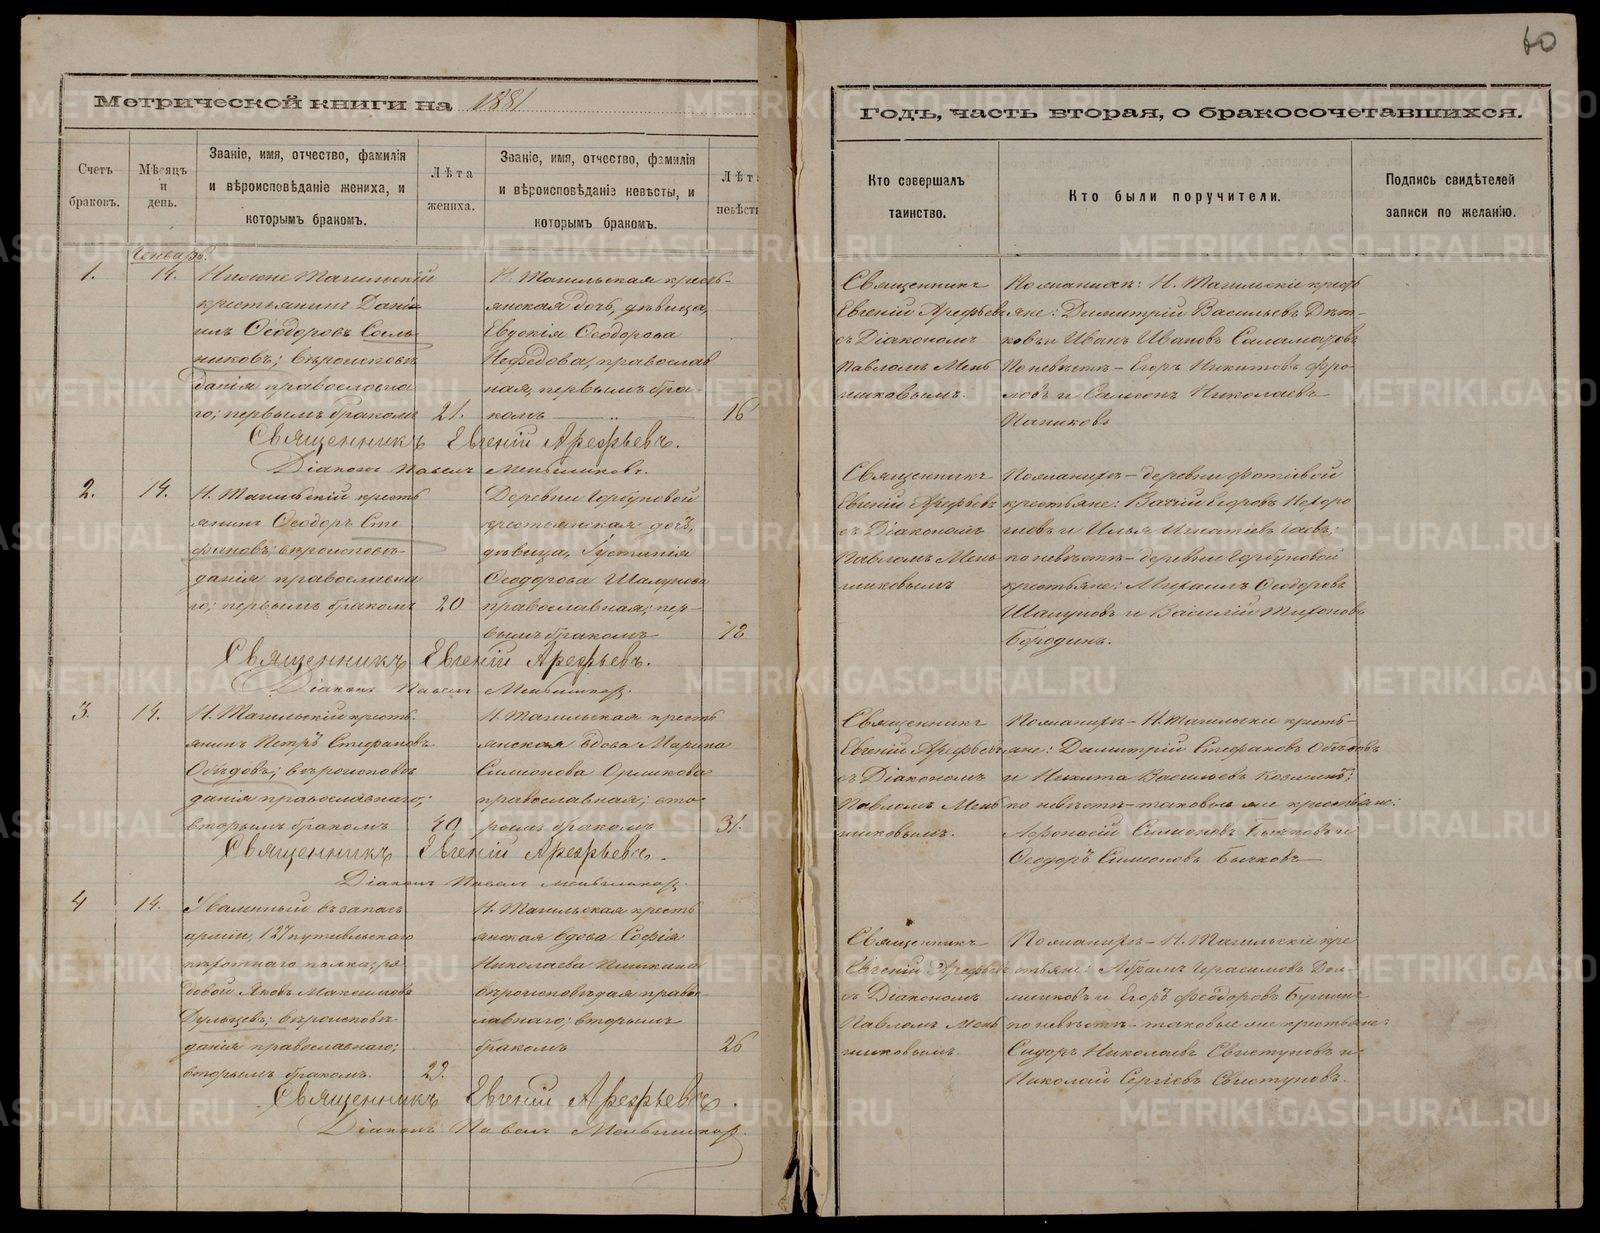 60
Метрической книги на 1881
Годъ, часть вторая, о бракосочетавшихся.
Счетъ браковъ.
Мѣсяцъ и день.
Званіе, имя, отчество, фамилія и вѣроисповѣданіе жениха, и которымъ бракомъ.
Лѣта жениха.
Званіе, имя, отчество, фамилія и вѣроисповѣданіе невѣсты, и которымъ бракомъ.
Лѣт невѣст
Кто совершалъ таинство.
Кто были поручители.
Подпись свидѣтелей записи по желанію.
Генварь.
1.
14.
Нижне Тагильскій
крестьянинъ Дані
илъ Ѳеодоровъ
никовъ; вѣроисповѣ
данія православна
го; первымъ бракомъ
21.
Н. Тагильская кресть-
янская дочь, дѣвица,
Евдокія Ѳеодорова
Нефедова, православ
ная, первымъ бра-
комъ
16
Священникъ
Евгеній Арефьевъ
съ Діакономъ
Павломъ Мень
шиковымъ.
По женихѣ: Н. Тагильскіе кресть
яне: Димитрій Васильевъ
ковъ и Иванъ Ивановъ
По невѣстѣ – Егоръ Никитовъ Фро
ловъ и Самсонъ Николаевъ
Священникъ Евгеній Арефьевъ.
Діаконъ Павелъ Меньшиковъ.
2.
14.
Н. Тагильскій кресть
янинъ Ѳеодоръ Сте
фановъ; вѣроисповѣ-
данія православна
го; первымъ бракомъ
20
Деревни Горбуновой
крестьянская дочь,
дѣвица, Іустинія
Ѳеодорова Шалунова
православная; пер-
вымъ бракомъ
18
Священникъ
Евгеній Арефьевъ
съ Діакономъ
Павломъ Мень
шиковымъ
По женихѣ – деревни
крестьяне: Егоровъ
и Илья Игнатіевъ
по невѣстѣ – деревни Горбуновой
крестьяне: Михаилъ Ѳеодоровъ
Шалуновъ и Василій Тихоновъ
Бородинъ.
Священникъ Евгеній Арефьевъ.
Діаконъ Павелъ Меньшиковъ.
3.
14.
Н. Тагильскій кресть
янинъ Петръ Стефановъ
Объѣдовъ; вѣроисповѣ
данія православнаго;
вторымъ бракомъ
40
Н. Тагильская кресть
янская вдова Марина
Симеонова
православная; вто-
рымъ бракомъ
31.
Священникъ
Евгеній Арефьевъ
съ Діакономъ
Павломъ Мень
шиковымъ.
По женихѣ – Н. Тагильскіе кресть-
яне: Димитрій Стефановъ Объѣдовъ
и Никита Васильевъ
по невѣстѣ – таковые же крестьяне:
Афонасій Симеоновъ Бычковъ и
Ѳеодоръ Симеоновъ Бычковъ
Священникъ Евгеній Арефьевъ.
Діаконъ Павелъ Меньшиковъ.
4
14.
Уволенный въ запасъ
арміи, 127 путивльскаго
пѣхотнаго полка; ря-
довой Яковъ Максимовъ
вѣроисповѣ-
данія православнаго;
вторымъ бракомъ.
29.
Н. Тагильская кресть
янская вдова Софія
Николаева Пишкина
вѣроисповѣдая право-
славнаго; вторымъ
бракомъ
26
Священникъ
Евгеній Арефьев
съ Діакономъ
Павломъ Мень
шиковымъ.
По женихѣ – Н. Тагильскіе кре
стьяне: Абрамъ Герасимовъ Дол-
и Егоръ Феодоровъ
по невѣстѣ – таковые же крестьяне:
Сидоръ Николаевъ Свистуновъ и
Николай Сергіевъ Свистуновъ.
Священникъ Евгеній Арефьевъ.
Діаконъ Павелъ Меньшиковъ.
METRIKI.GASO-URAL.RU